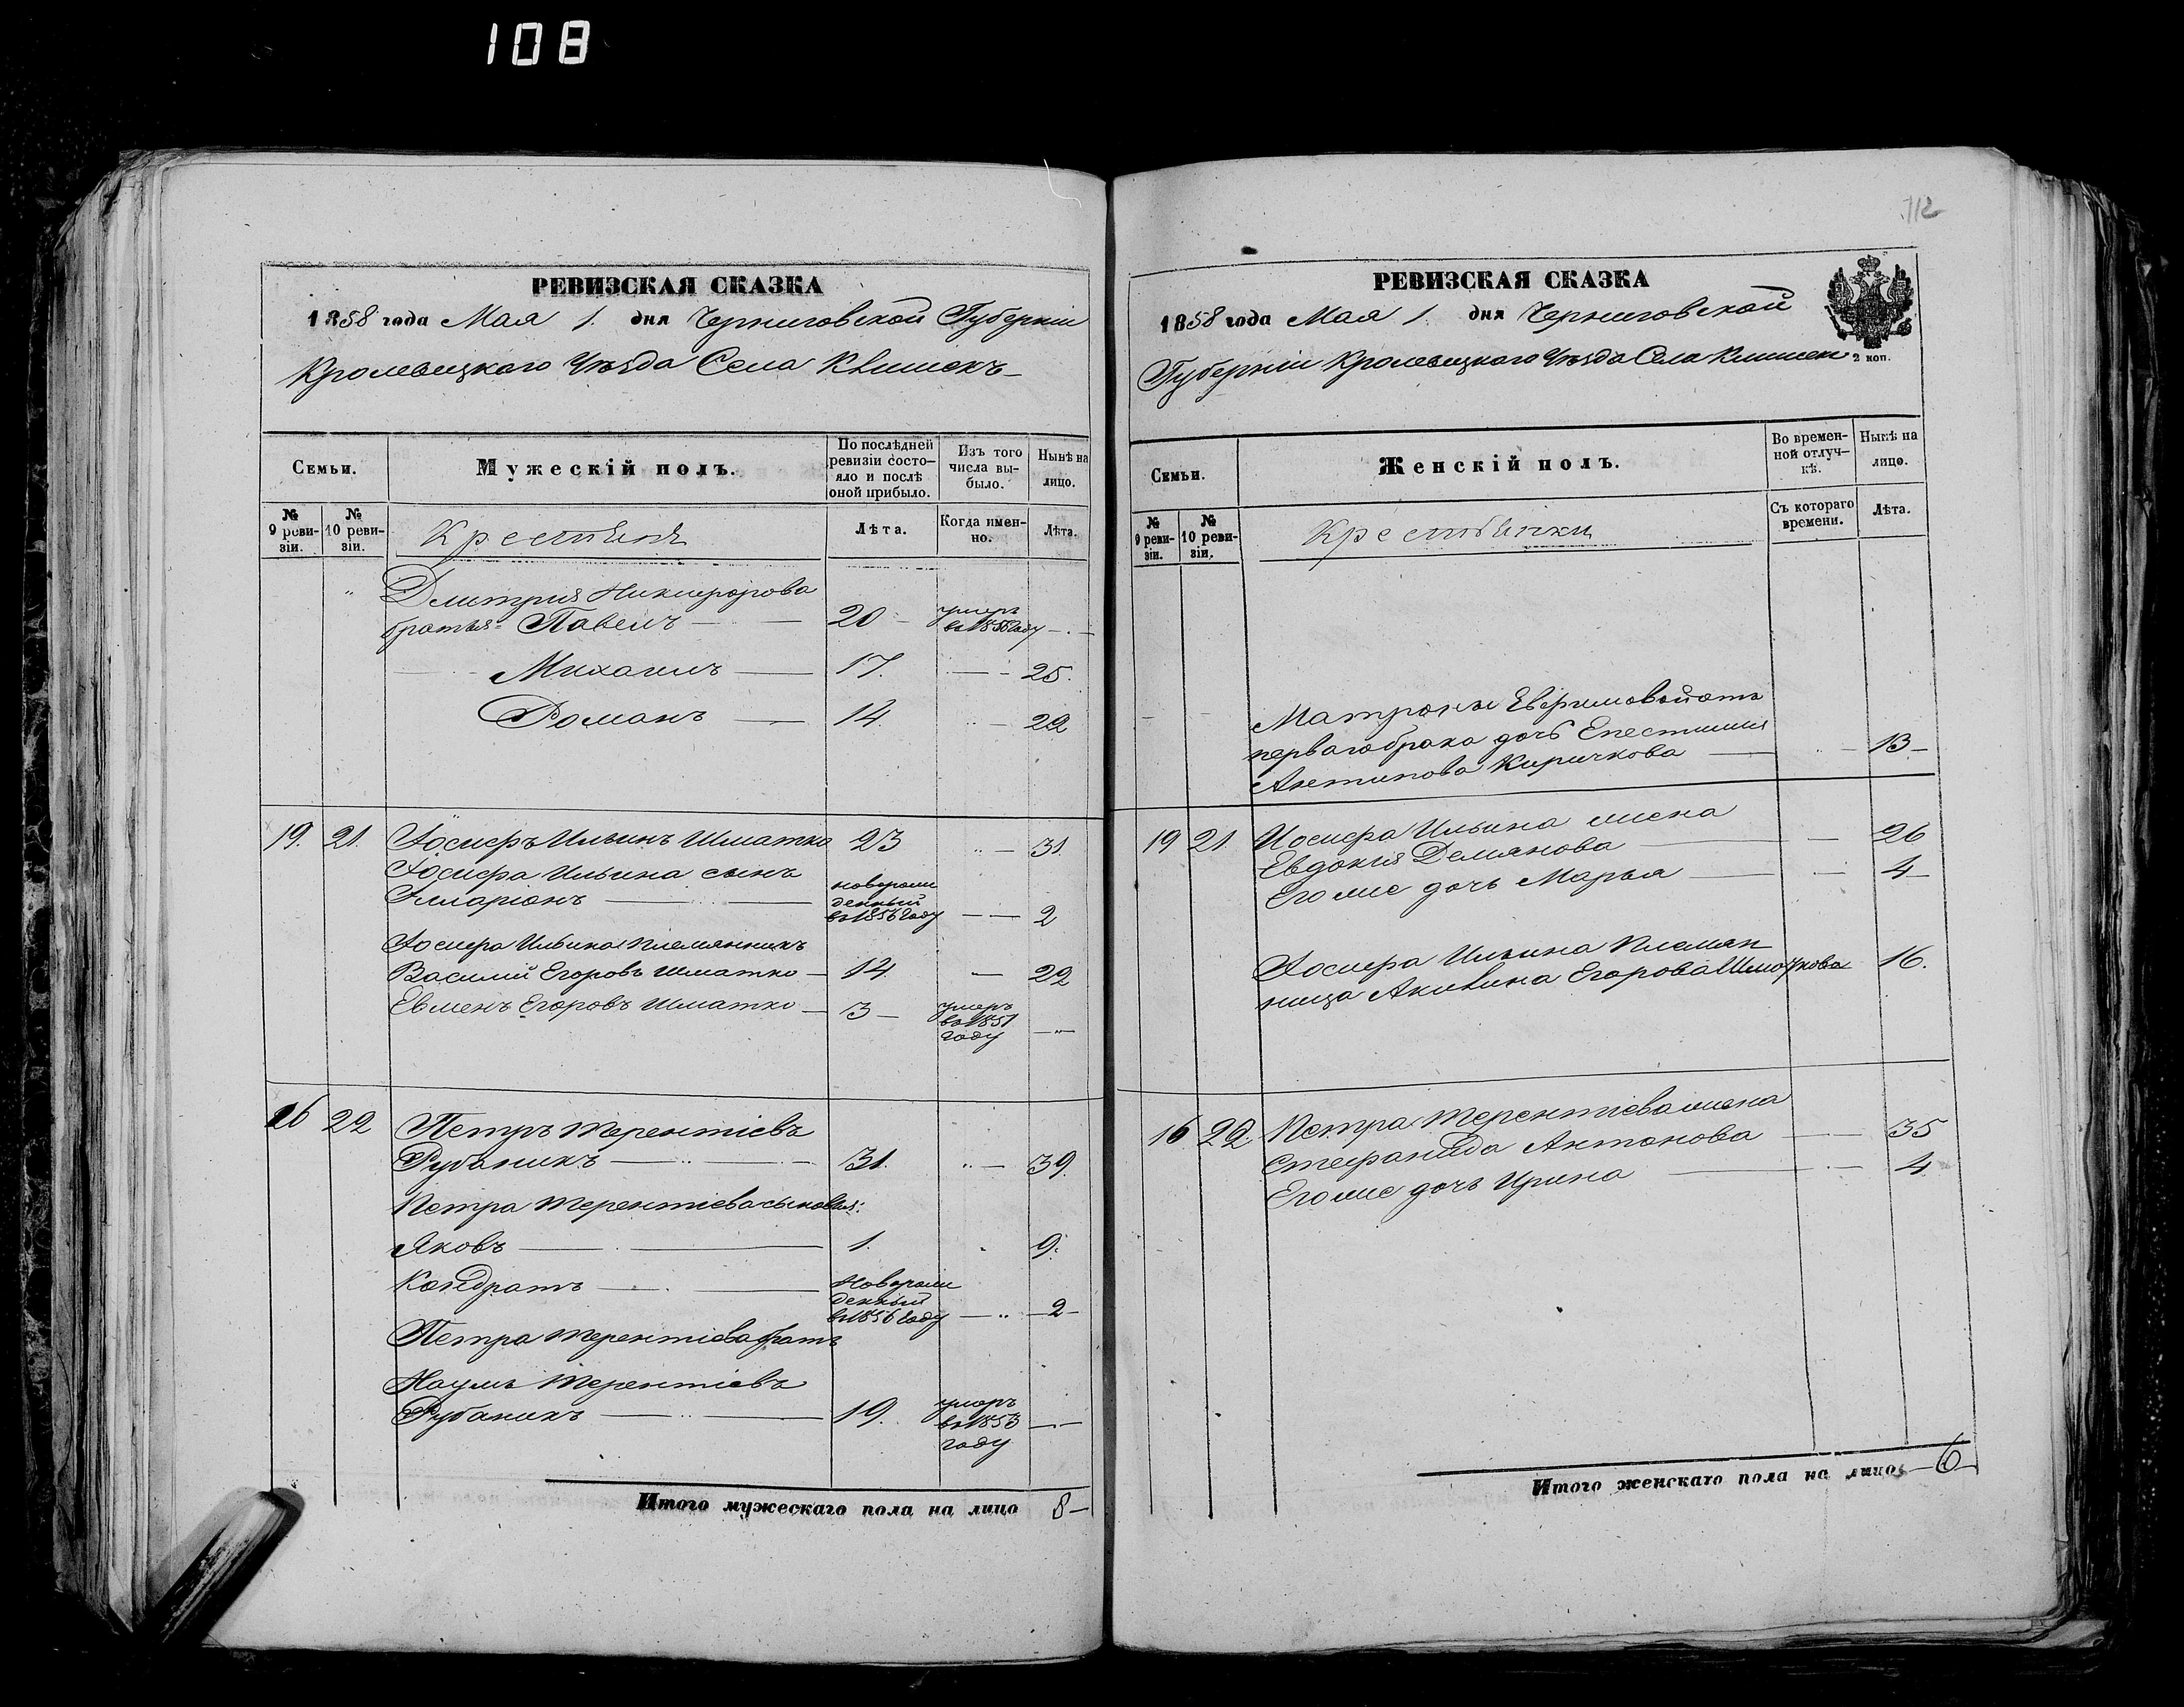 108
РЕВИЗСКАЯ СКАЗКА
1858 года Мая 1. дня Черниговской Губерніи
Кролевецкаго Уѣзда Села Клишекъ
Семьи.
Мужескій полъ.
По послѣдней ревизіи состояло и послѣ оной прибыло.
Изъ того числа выбыло.
Нынѣ на лицо.
№ 9 ревизіи.
№ 10 ревизіи.
Крестьяня
Лѣта.
Когда именно.
Лѣта.
Дмитрія Никифорова
братья: Павелъ — 20 — умеръ въ 1856 году —
Михаилъ — 17. — 25.
Романъ — 14. — 22
19. 21. Іосифъ Ильинъ Шматко 23 — 31.
Іосифа Ильина сынъ
Илларіонъ — новорожденный въ 1856 году — 2
Іосифа Ильина племянникъ
Василій Егоровъ Шматко — 14. — 22
Евменъ Егоровъ Шматко — 3 — умеръ въ 1851 году —
16 22 Петръ Терентіевъ
Рубаникъ — 31. — 39.
Петра Терентіева сыновья:
Яковъ — 1. 9.
Кондратъ — новорожденный въ 1856 году — 2 —
Петра Терентіева братъ
Наумъ Терентіевъ
Рубаникъ — 19. умеръ въ 1853 году —
Итого мужескаго пола на лицо 8 —
112
РЕВИЗСКАЯ СКАЗКА
1858 года Мая 1. дня Черниговской
Губерніи Кролевецкаго Уѣзда Села Клишек
2 коп.
Семьи.
Женскій полъ.
Во временной отлучкѣ.
Нынѣ на лицо.
№ 9 ревизіи.
№ 10 ревизіи.
Крестьянки
Съ котораго времени.
Лѣта.
Матроны Евфимовой отъ
перваго брака дочь Епестимия
Антипова Киричкова — 13 —
19 21. Иосифа Ильина жена
Евдокия Демянова — 26
Его же дочь Марья — 4 —
Іосифа Ильина Племян
ница Акилина Егорова Шматкова 16.
16 22. Петра Терентіева жена
Стефанида Антонова — 35
Его же дочь Ирина — 4.
Итого женскаго пола на лицо 6 —